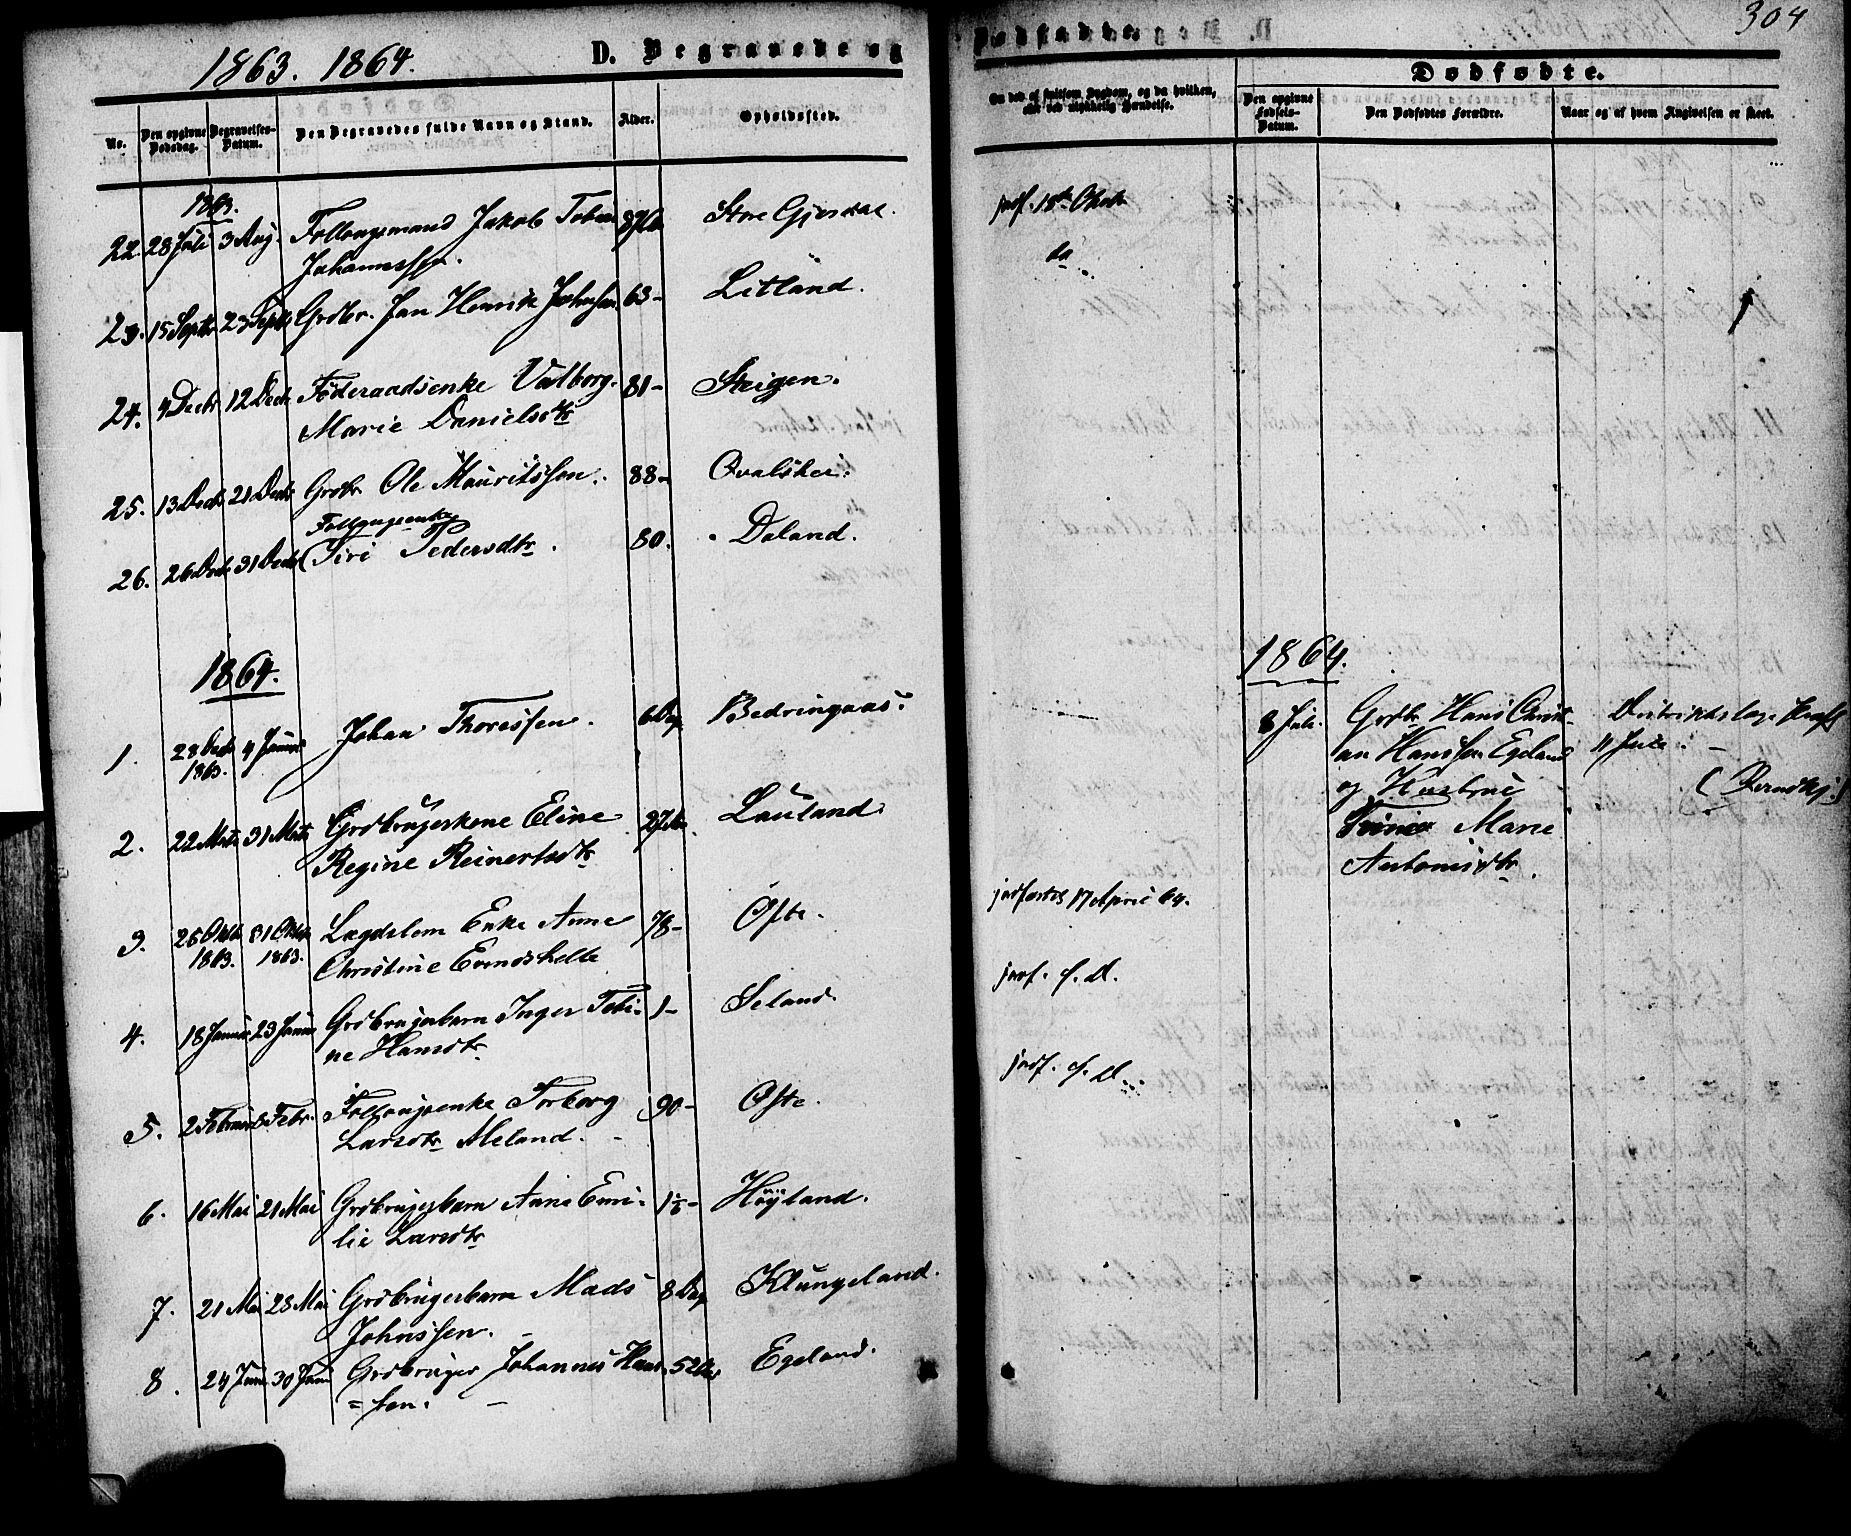 1863. 1864. D. Begravede og
No. Den opgivne Dødsdag. Begravelses-Datum. Den Begravedes fulde Navn og Stand. Alder. Opholdssted.
1863.
22. 28 Juli 3 Aug. Follougsmand Jakob Tobias Store Gjerdal.
Johannessen.
23. 15 Septbr 23 Septbr Grdbr. Jan Henrik Johnsen 63- Litland.
24. 4 Decbr 12 Decbr Føderaadsenke Valborg 81- Steigen.
Marie Danielsdtr
25. 13 Decbr 21 Decbr Grdbr Ole Mauritssen. 88- Qvalskei.
Follougsenke
26. 26 Decbr 31 Decbr Siri Pedersdtr. 80. Daland.
1864.
1. 28 Decbr 1863. 4 Januar Johan Thoressen. 6 Dag Bedringaas.
2. 22 Marts 31 Marts Grdbrugerkone Eline 27 Lauland.
Regine Reinertsdtr
3. 26 Oktbr 1863. 31 Oktbr 1863. Lægdslem Enke Anne 78- Øfte.
Christine
4. 18 Januar 23 Januar Grdbrugerbarn Inger Tobi- 1- Seland.
ne Hansdtr
5. 2 Februar 8 Febr. Follougsenke Torborg 90- Øfte.
Larsdtr Meland.
6. 16 Mai 21 Mai Grdbrugerbarn Anne Emi- 1½- Høyland.
lie Larsdtr
7. 21 Mai 28 Mai Grdbrugerbarn Mads 8 Dag Klungeland.
Johnssen.
8. 24 Juni 30 Juni Grdbruger Johannes Hans- 52 Egeland.
=sen.
Dødfødte. 304
Om død af smitsom Sygdom, og da hvilken, eller ved ulykkelig Hændelse.
Dødfødte.
Den opgivne Fødsels-Datum. Den Dødfødtes Forældre. Naar og af hvem Angivelsen er skeet.
jrdf. 18de Oktobr
do
1864.
8 Juli. Grdbr Hans Christi- Distriktslæge
an Hanssen Egeland 11 Juli.
og Hustrue
Marie
Antonisdtr.
jrdfæstet 17 April 64.
jrdf. s. D.
jrdf. s. D.